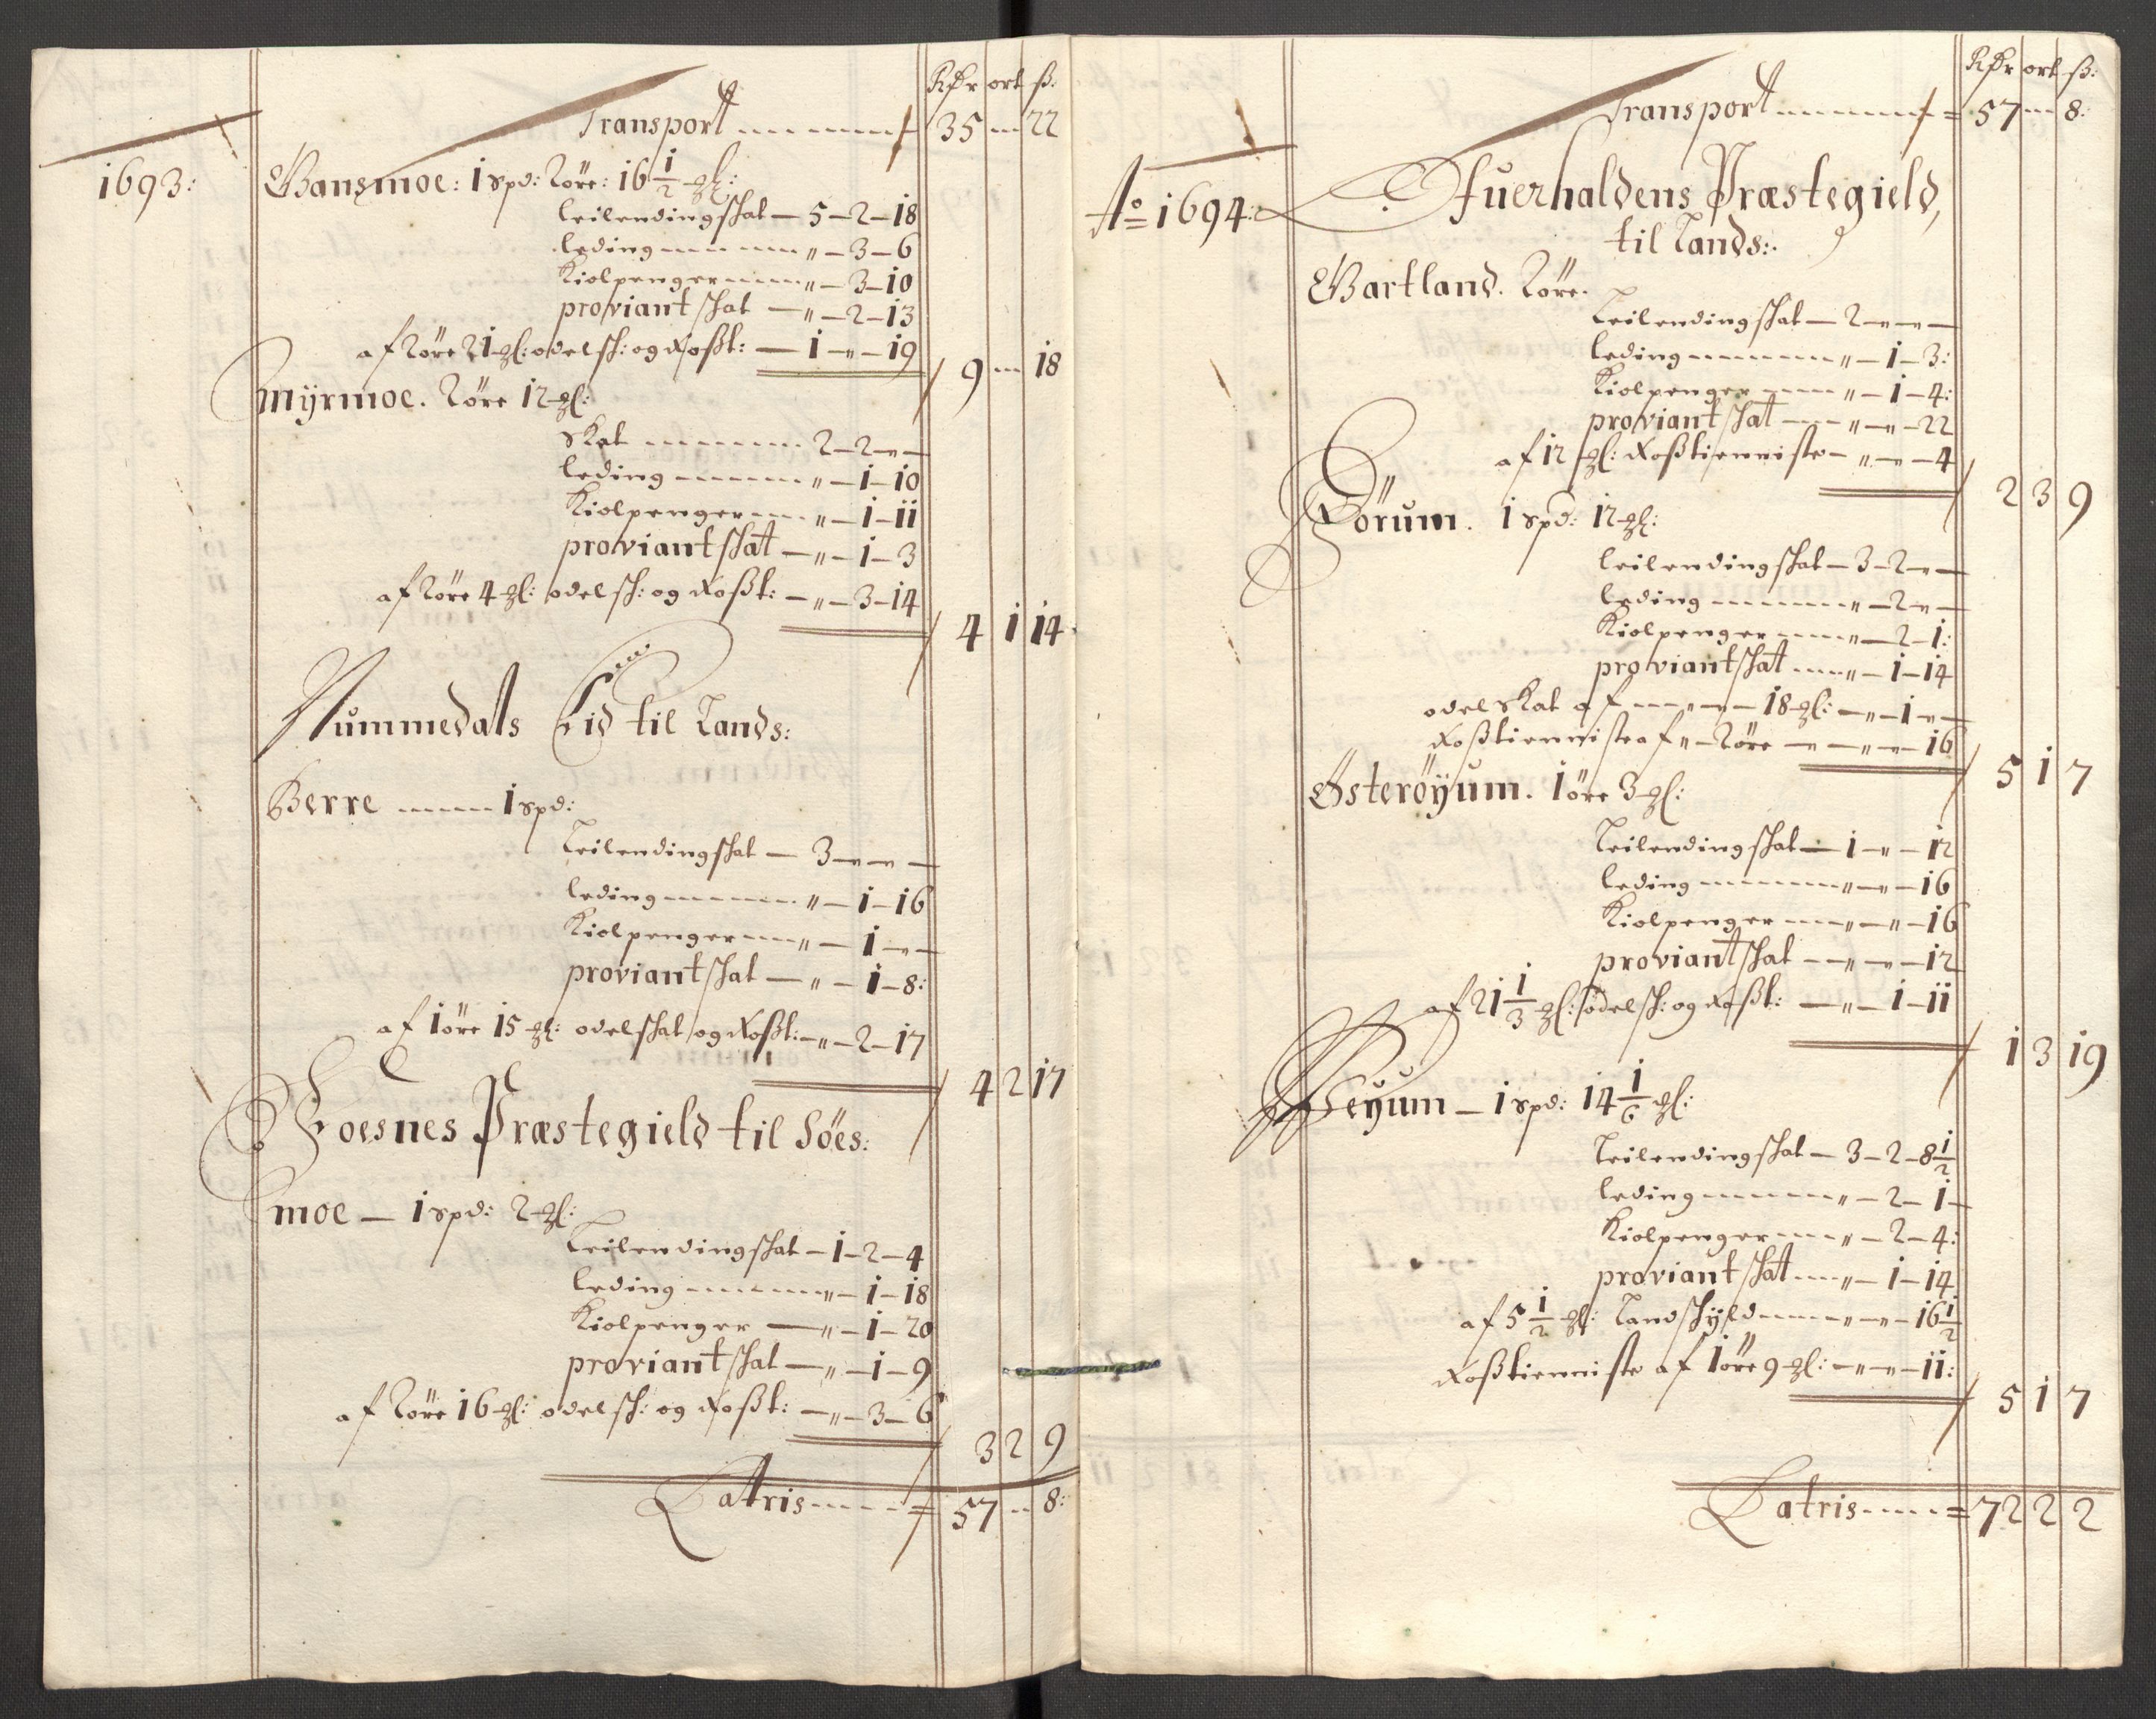 Rdr ort ß:
Transport 35 — 22
1693:
Gansmoe: 1 spd: 2 öre: 16 1/2 gl:
leilendingschat — 5 — 2 — 18
leding — „ — 3 — 6
Kiolpenger — „ — 3 — 10
proviant schat — „ — 2 — 13
af 2 öre 21 gl: odelsch: og Roßt: — 1 — „ — 19
9 — 18
Myrmoe. 2 öre 12 gl:
Skat — 2 — 2 — „ —
leding — „ — 1 — 10
Kiolpenger — „ — 1 — 11
proviant schat — „ — 1 — 3
af 2 öre 4 gl: odelsch: og Roßt: — „ — 3 — 14
4 1 14
Nummedals Eid til Lands:
Berre — 1 spd:
Leilendingschat — 3 — „ — „ —
leding — „ — 1 — 16
Kiolpenger — „ — 1 — „ —
proviant schat — „ — 1 — 8:
af 1 öre 15 gl: odelschat og Roßt: — „ — 2 — 17
4 2 17
Foesnes Præstegield til Söes:
Moe — 1 spd: 2 gl:
Leilendingschat — 1 — 2 — 4
leding — „ — 1 — 18
Kiolpenger — „ — 1 — 20
proviant schat — „ — 1 — 9
af 2 öre 16 gl: odelsch: og Roßt: — „ — 3 — 6
3 2 9
Latris = 57 — 8:
Rdr ort ß:
Transport = 57 — 8:
Ao 1694:
Ofuerhaldens Præstegield,
til Lands:
Bartland. 2 öre.
Leilendingschat — 2 — „ — „ —
leding — „ — 1 — 3:
Kiolpenger — „ — 1 — 4:
proviant schat — „ — „ — 22
af 12 gl: Roßtienniste — „ — „ — 4
2 3 9
Rörum. 1 spd: 12 gl:
leilendingschat — 3 — 2 — „ —
leding — „ — 2 — „ —
Kiolpenger — „ — 2 — 1:
proviant schat — „ — 1 — 14
odelskat af — „ — „ — 18 gl: — „ — 1 — „ —
Roßtienniste af „ — 2 öre — „ — „ — 16
5 1 7
Österöyum. 1 öre 3 gl:
Leilendingschat — 1 — „ — 12
leding — „ — „ — 16
Kiolpenger — „ — „ — 16
proviant schat — „ — „ — 12
af 21 1/3 gl: odelsch: og Roßt: — „ — 1 — 11
1 3 19
Veyum — 1 spd: 14 1/6 gl:
Leilendingschat — 3 — 2 — 8 1/2
leding — „ — 2 — 1 —
Kiolpenger — „ — 2 — 4:
proviant schat — „ — 1 — 14
af 5 1/2 gl: Landschyld — „ — „ — 16 1/2
Roßtienniste af 1 öre 9 gl: — „ — „ — 11:
5 1 7
Latris = 72 2 2